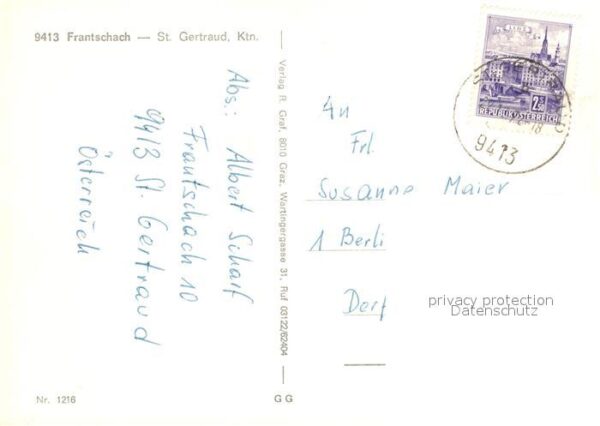 9413 Frantschach — St. Gertraud, Ktn.
Abs.: Albert Scharf
Frantschach 10
9413 St. Gertraud
Österreich
Nr. 1216
Verlag R. Graf, 8010 Graz, Wartingergasse 31, Ruf 03122/62404
G G
LINZ
2.50
REPUBLIK ÖSTERREICH
9413
An
Frl.
Susanne Maier
1 Berli
Derf
privacy protection
Datenschutz